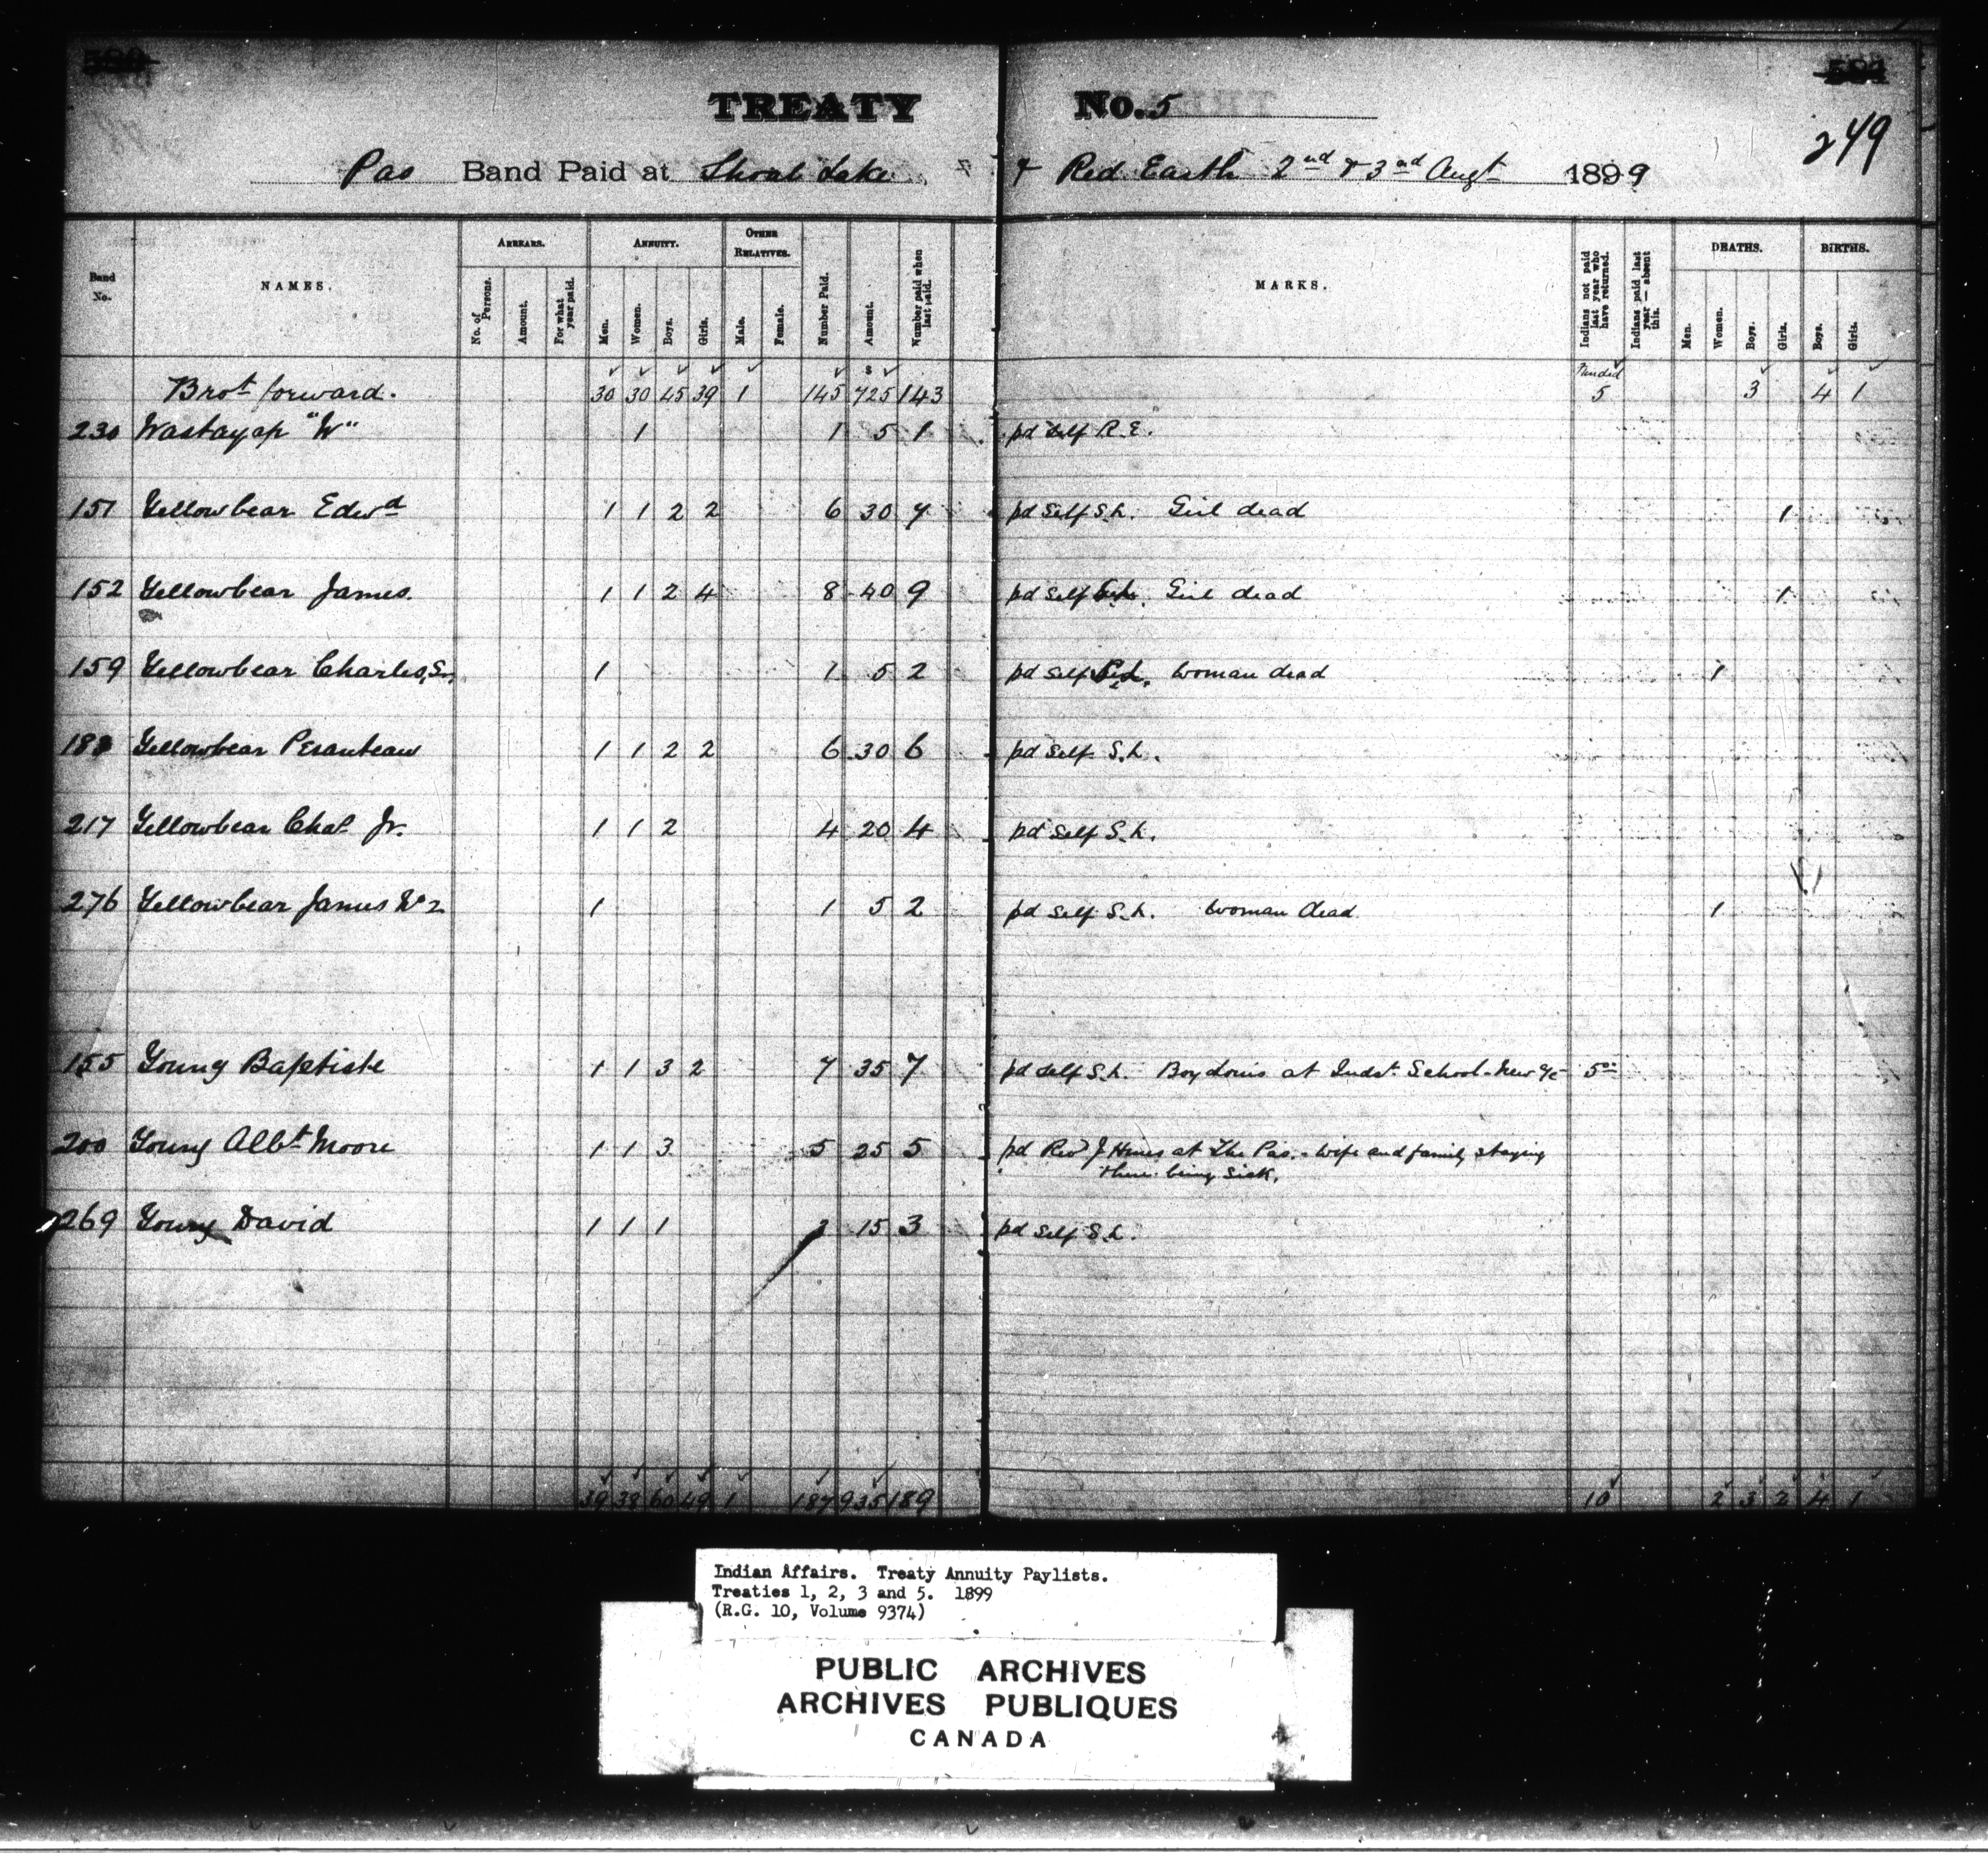 TREATY No. 5
249
Pas Band Paid at Shoal Lake & Red Earth 2nd & 3rd Augt 1899
Band No.
NAMES.
ARREARS.
No. of Persons.
Amount.
For what year paid.
ANNUITY.
Men.
Women.
Boys.
Girls.
OTHER RELATIVES.
Male.
Female.
Number Paid.
Amount.
Number paid when last paid.
MARKS.
Indians not paid last year who have returned.
Indians paid last year — absent this.
DEATHS.
Men.
Women.
Boys.
Girls.
BIRTHS.
Boys.
Girls.
Brot forward. 30 30 45 39 1 145 $ 725 143 5 3 4 1
230 Wastayap "W" 1 1 5 1 pd self R.E.
151 Yellowbear Edwd 1 1 2 2 6 30 7 pd Self S.L. Girl dead 1
152 Yellowbear James. 1 1 2 4 8 40 9 pd self Girl dead 1
159 Yellowbear Charles, Sr. 1 1 5 2 pd self woman dead 1
Yellowbear 1 1 2 2 6 30 6 pd self S.L.
217 Yellowbear Chas Jr. 1 1 2 4 20 4 pd self S.L.
276 Yellowbear James No 2 1 1 5 2 pd self S.L. woman dead 1
155 Young Baptiste 1 1 3 2 7 35 7 pd self S.L. Boy Louis at Indst. School 5
200 Young Albt Moore 1 1 3 5 25 5 pd Revd J Hines at The Pas. - wife and family staying
there being sick.
269 Young David 1 1 1 3 15 3 pd self S.L.
39 38 60 49 1 187 935 189 10 2 3 2 4 1
Indian Affairs. Treaty Annuity Paylists.
Treaties 1, 2, 3 and 5. 1899
(R.G. 10, Volume 9374)
PUBLIC ARCHIVES
ARCHIVES PUBLIQUES
CANADA